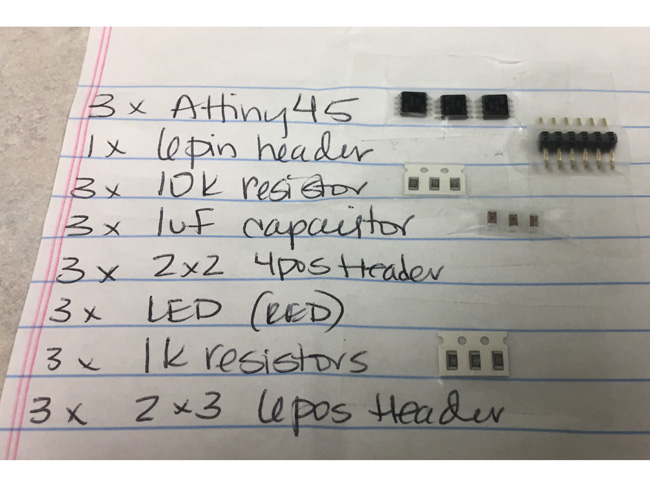 3 x Attiny45
1 x 6pin header
3 x 10k resistor
3 x 1uF capaistor
3 x 2x2 4pos Header
3 x LED (RED)
3 x 1k resistors
3 x 2x3 6pos Header